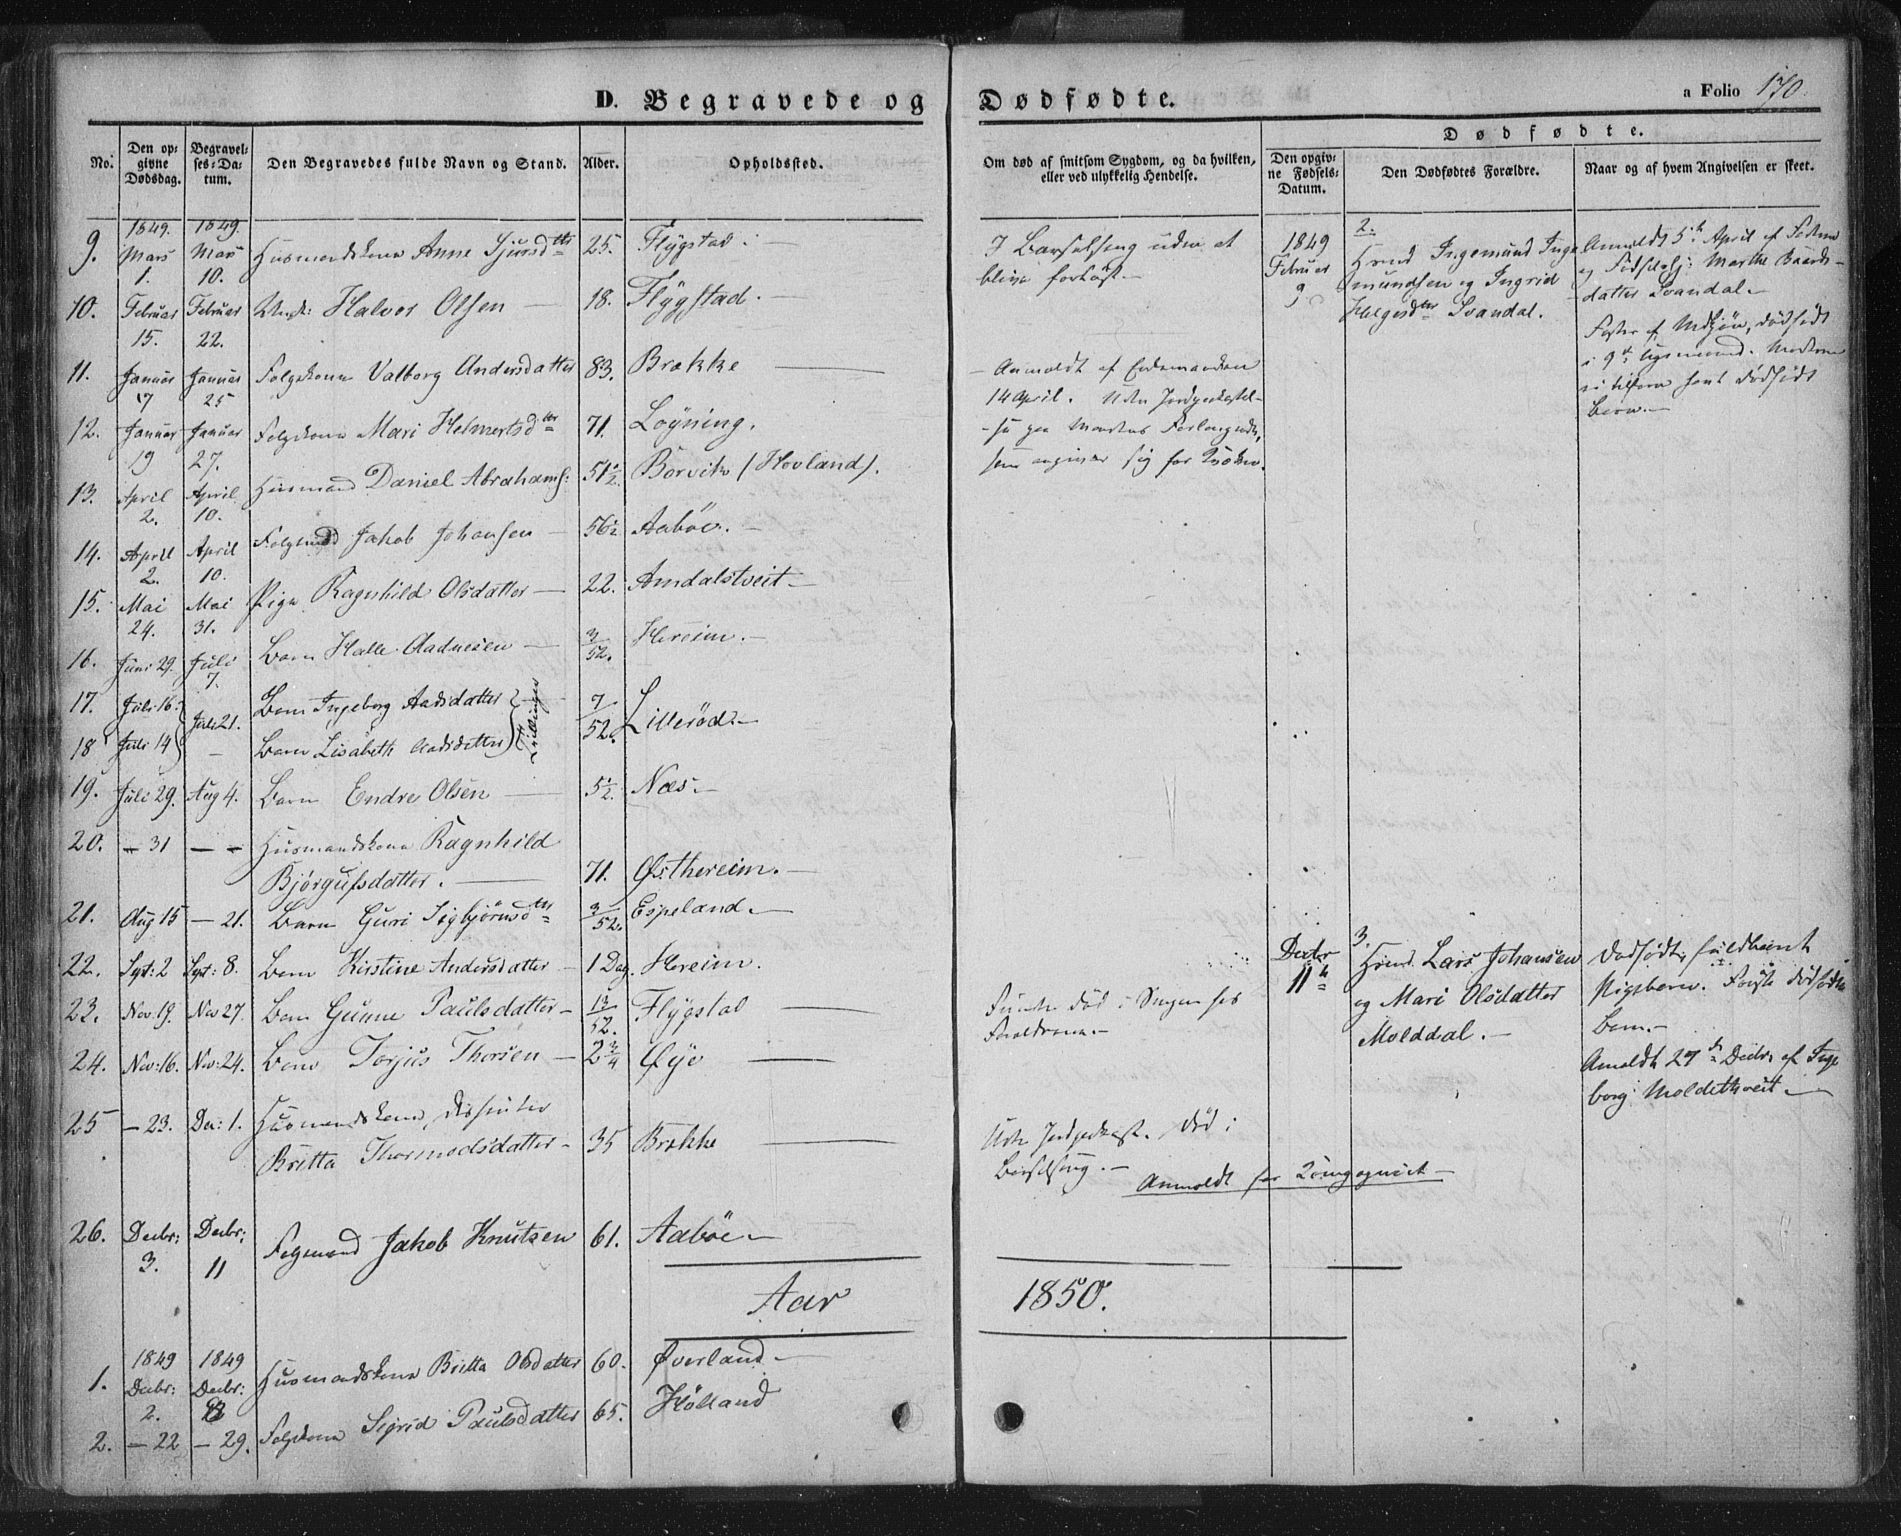 D. Begravede og Dødfødte.
a Folio 170.
No.
Den opgivne Dødsdag.
Begravelses-Datum.
Den Begravedes fulde Navn og Stand.
Alder.
Opholdssted.
Om død af smitsom Sygdom, og da hvilken, eller ved ulykkelig Hendelse.
Dødfødte.
Den opgivne Fødsels-Datum.
Den Dødfødtes Forældre.
Naar og af hvem Angivelsen er skeet.
9. 1849. Mars 1. 1849. Mars 10. Huusmandskone Anne Sjursdttr 25. Flÿgstad.
I Barselseng uden at
blive forløst.
1849 Februar 9
2.
Hmd Ingemund Inge
mundsen og Ingrid
Helgesdttr Svandal.
Anmeldt 5te April af
og Marthe Baards-
datter Svandal.
10. Februar 15. Februar 22. Halvor Olsen 18. Flÿgstad.
11. Januar 17 Januar 25 Folgekone Valborg Andersdatter 83. Brokke
Anmeldt af Enkemanden
14 April. Uden Jordpaakastel-
12. Januar 19 Januar 27. Folgekone Mari Helmertsdttr 71. Løyning.
13. April 2. April 10. Huusmand Daniel Abrahams: 51½ Borvik (Hovland).
14. April 2. April 10. Folgemd Jakob Johansen 56½ Aabøe.
15. Mai 24. Mai 31. Pige Ragnhild Olsdatter 22. Amdalstveit
16. Juni 29. Juli 7. Barn Halle Aadnesen 3/52. Hereim.
17. Juli 16. Juli 21. Barn Ingeborg Aadsdatter
Tvillinger 7/52. Lillerød.
18 Juli 14 – Barn Lisabeth Aadsdatter
19. Juli 29. Aug 4. Barn Endre Olsen 5½. Næs.
20. – 31 – – Huusmandskone Ragnhild
Bjørgufsdatter. 71. Østhereim.
21. Aug 15 – 21. Barn Guri Sigbjørnsdttr 3/52. Espeland.
22. Sept: 2 Sept: 8. Barn Kirstine Andersdatter 1 Dag. Hereim.
Decbr 11te
3.
Hmd. Lars Johansen
og Mari Olsdatter
Molddal.
Dødfødt, fuldbaaret
Pigebarn. Første dødfødte
Barn.
Anmeldt 27de Decbr. af Inge
borg Moldetkveit.
23. Nov. 19. Nov 27. Barn Gunne Paulsdatter 13/52. Flÿgstad
Funden død i Sengen hos
Forældrene.
24. Nov: 16. Nov: 24. Barn Torjus Thorsen 2¾ Øÿe
25 – 23. Dec: 1. Huusmandskone, dissenter
Britta Thormodsdatter 35 Brokke
Uden Jordpaakast. Død i
Barselseng.
Anmeldt for
26. Decbr: 3. Decbr: 11 Folgemand Jakob Knutsen 61. Aabøe
Aar 1850.
1. 1849 Decbr: 2. 1849 Decbr: Huusmandskone Britta Olsdatter 60. Øverland
2. – 22 – 29. Folgekone Sigrid Paulsdatter 65. Hølland